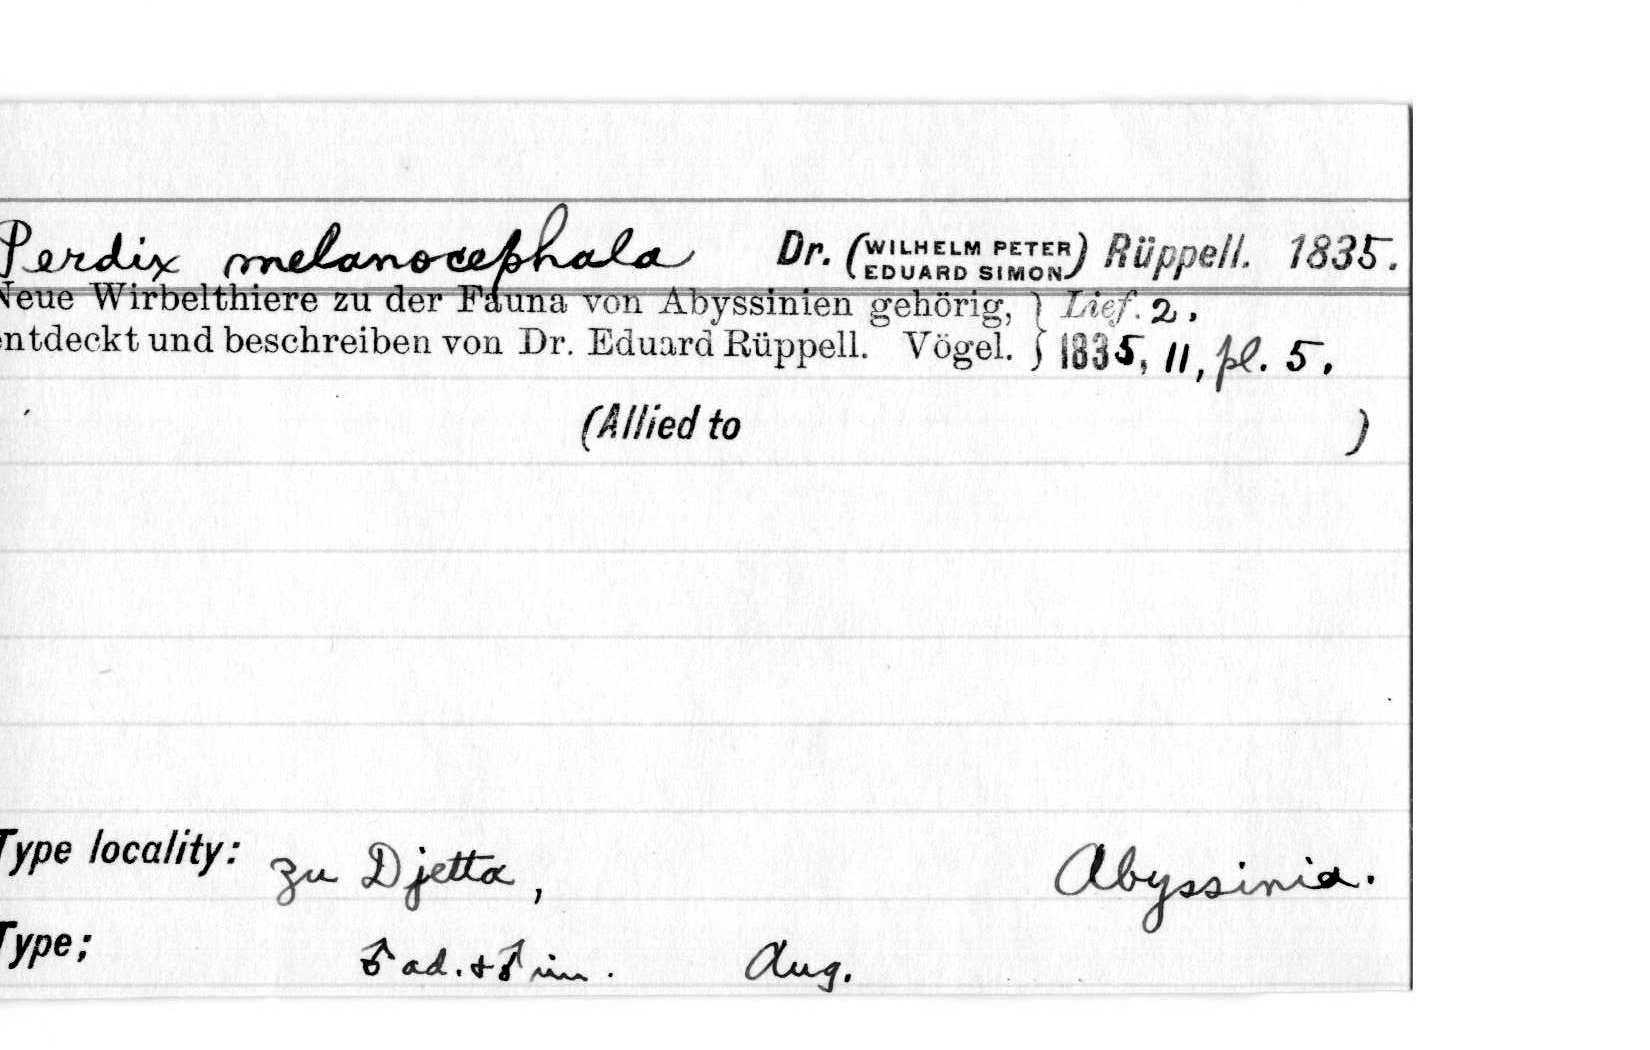 Perdix melanocephala Dr. (WILHELM PETER EDUARD SIMON) Rüppell. 1835.
Neue Wirbelthiere zu der Fauna von Abyssinien gehörig, } Lief. 2.
entdeckt und beschreiben von Dr. Eduard Rüppell. Vögel. } 1835, 11, pl. 5.
(Allied to )
Type locality: zu Djetta, Abyssinia.
Type; ♂ ad. + ♂ im. Aug.